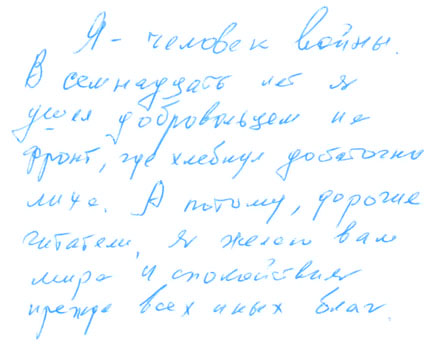 Я - человек войны.
В семнадцать лет я
ушёл добровольцем на
фронт, где хлебнул достаточно
лиха. А потому, дорогие
читатели, я желаю вам
мира и спокойствия
прежде всех иных благ.